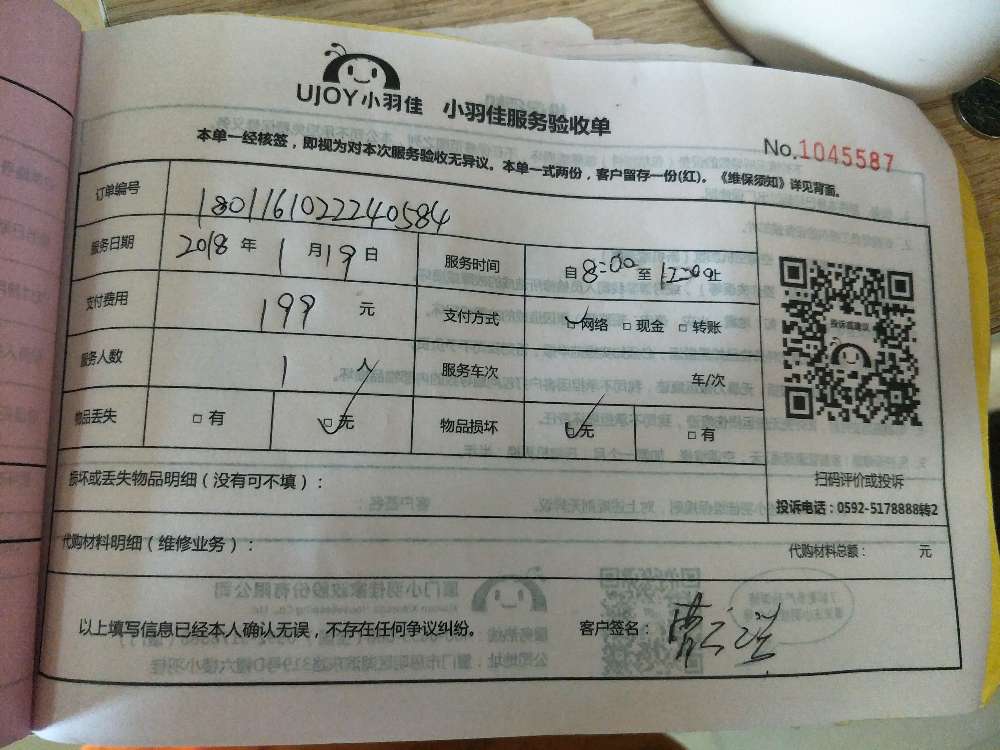 UJOY小羽佳 小羽佳服务验收单
No.1045587
本单一经核签，即视为对本次服务验收无异议。本单一式两份，客户留存一份(红)。《维保须知》详见背面。
订单编号 1801161022240584
服务日期 2018年1月19日 服务时间 自8:00至12:00止
支付费用 199 元 支付方式 □网络 □现金 □转账
服务人数 1 人 服务车次 车/次
物品丢失 □有 □无 物品损坏 □无 □有
投诉或建议
扫码评价或投诉
投诉电话：0592-5178888转2
损坏或丢失物品明细（没有可不填）：
代购材料明细（维修业务）： 代购材料总额： 元
以上填写信息已经本人确认无误，不存在任何争议纠纷。 客户签名：